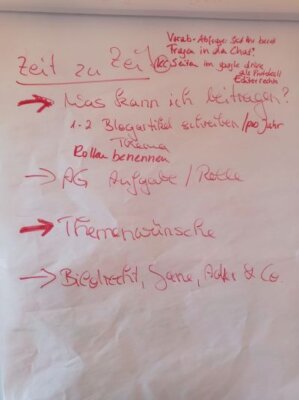 Vorab-Abfrage: Seid Ihr bereit
Fragen in den Chat?
Zeit zu Zeit
Seiten im google drive
als Protokoll
→ Was kann ich beitragen?
1-2 Blogartikel schreiben / pro Jahr
Thema
Rollen benennen
→ AG Aufgabe / Rolle
→ Themenwünsche
→ Bildrecht, & Co.